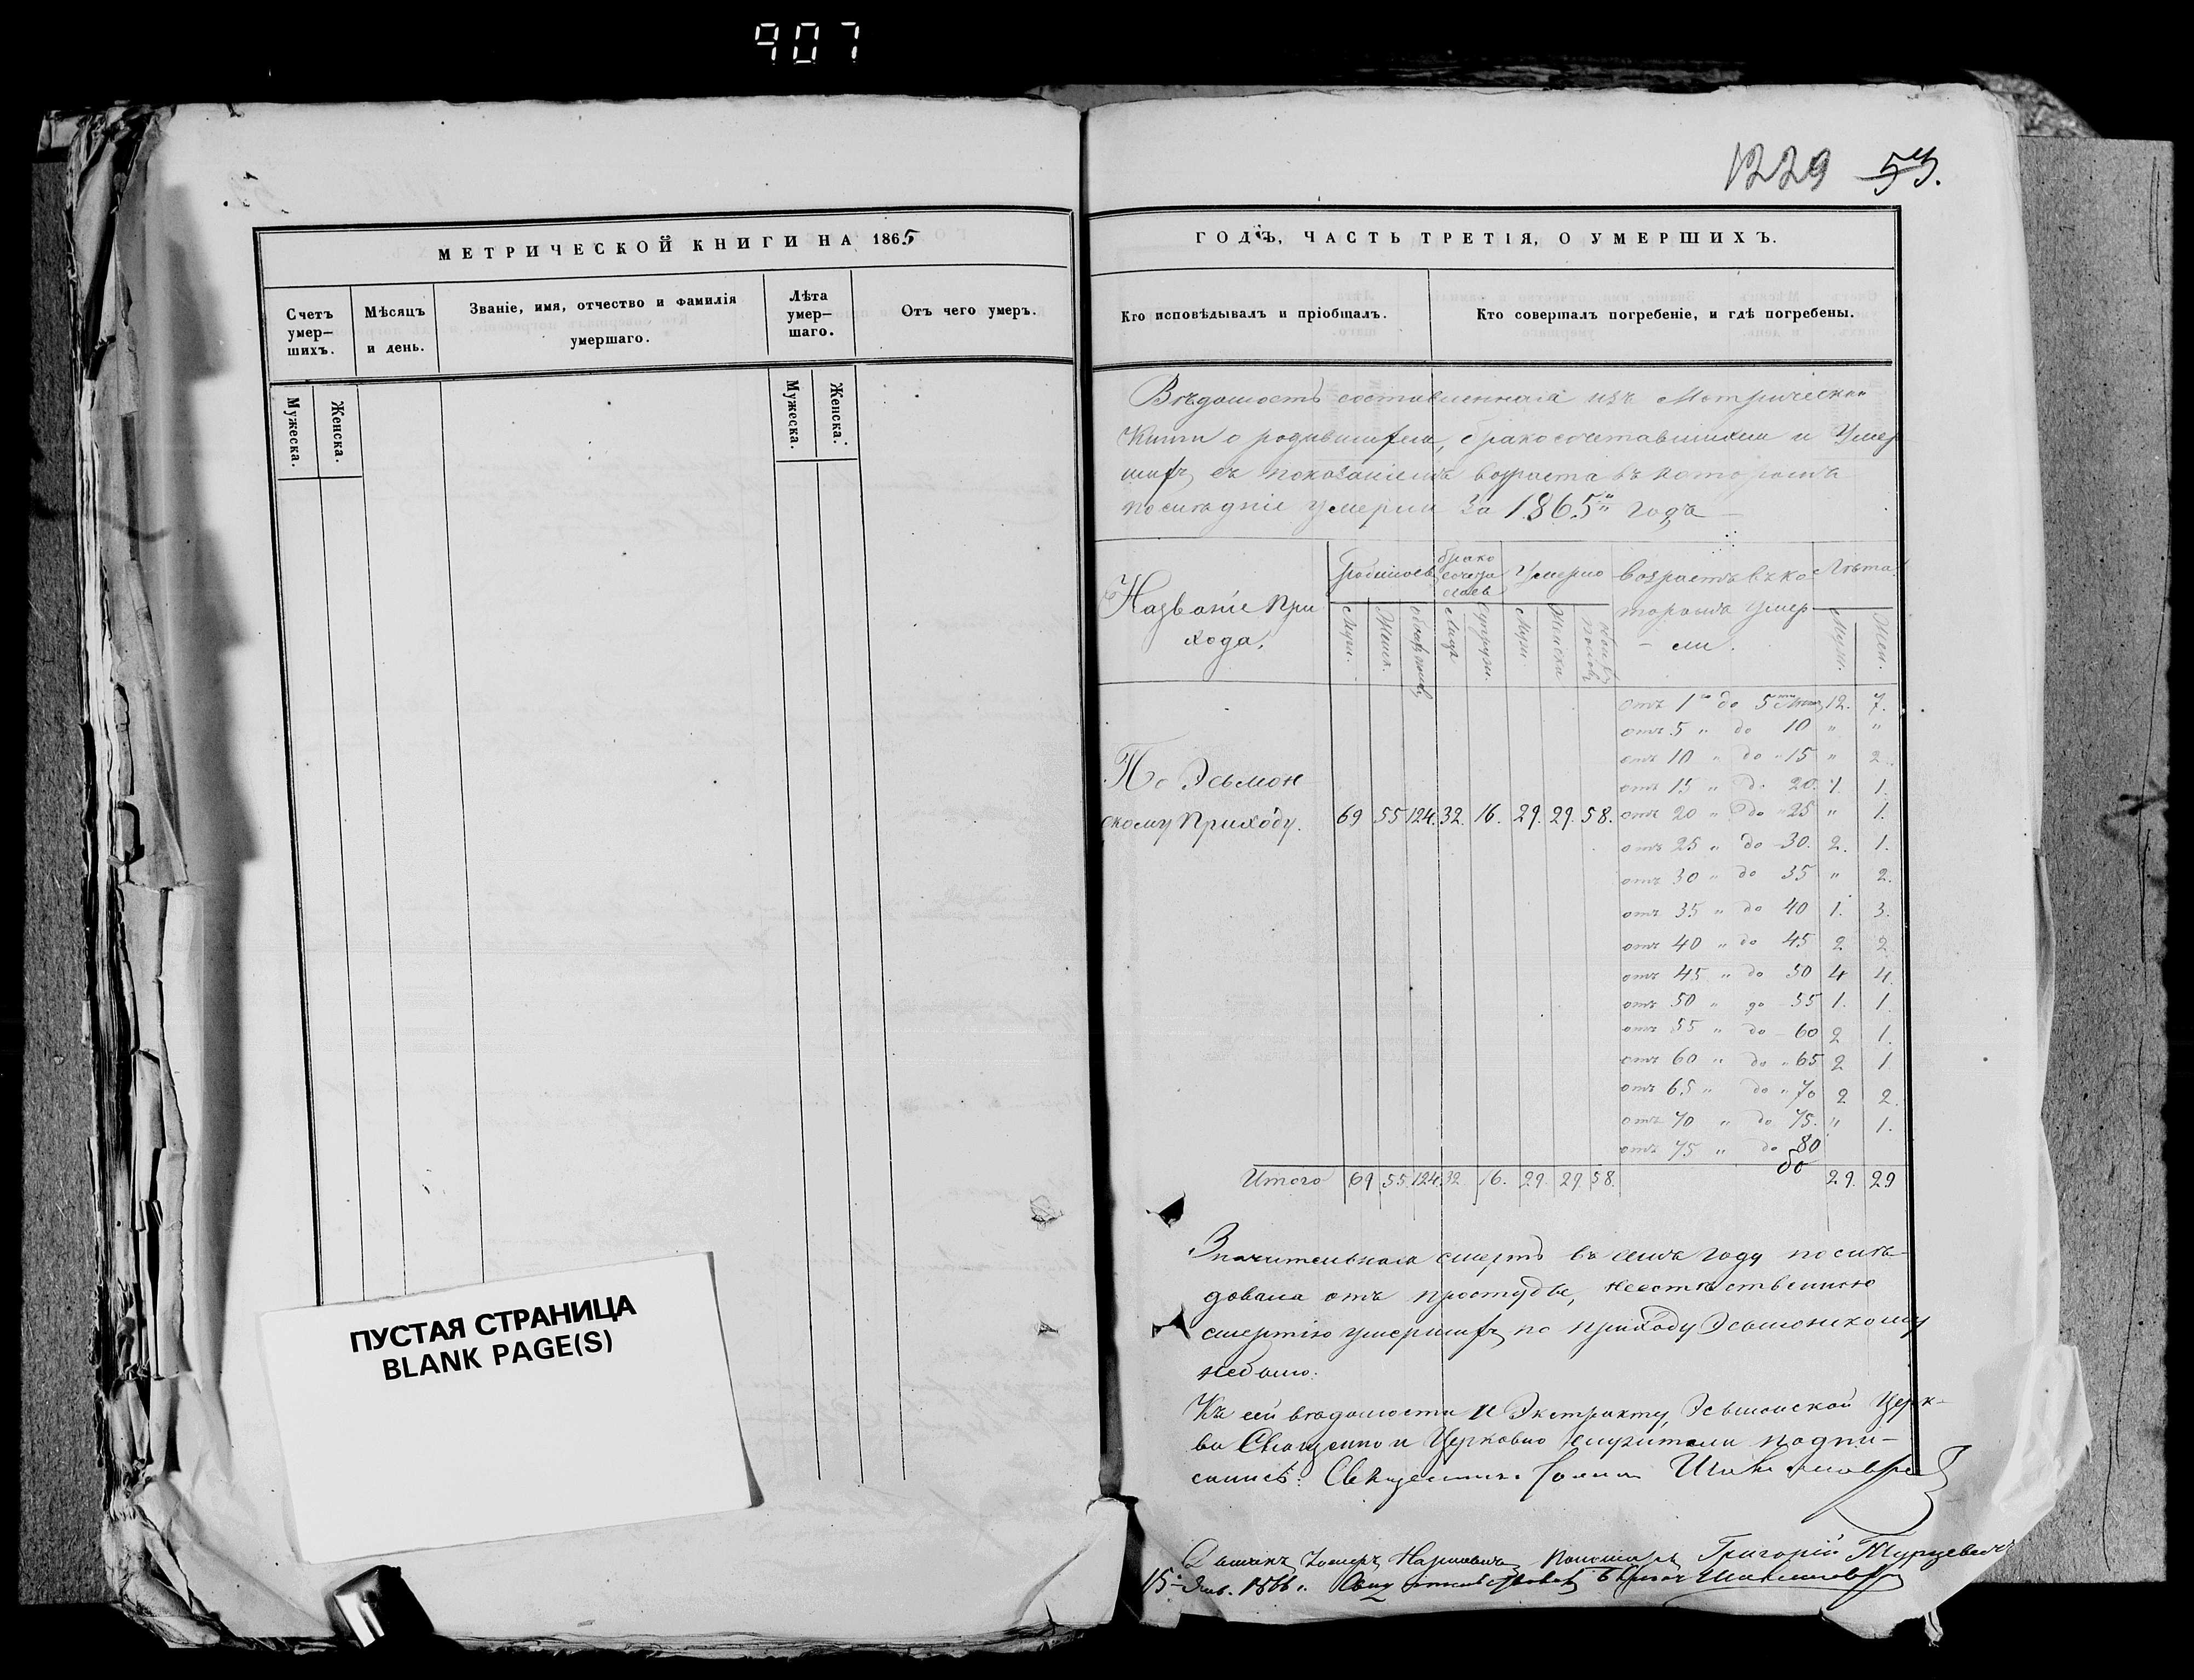 907
1229 53.
МЕТРИЧЕСКОЙ КНИГИ НА 1865
Счетъ умер-шихъ.
Мѣсяцъ и день.
Званіе, имя, отчество и фамилія умершаго.
Лѣта умер-шаго.
Отъ чего умеръ.
Мужеска.
Женска.
Мужеска.
Женска.
ПУСТАЯ СТРАНИЦА
BLANK PAGE(S)
ГОДЪ, ЧАСТЬ ТРЕТІЯ, О УМЕРШИХЪ.
Кто исповѣдывалъ и пріобщалъ.
Кто совершалъ погребеніе, и гдѣ погребены.
Вѣдомость составленная изъ Метрической
Книги о родившихся, бракосочетавшихся и Умер
шихъ съ показаніемъ возраста въ которомъ
послѣдніе умерли за 1865" годъ
Названіе При
хода.
Родилось
брако
сочета
лось
Умерло
возрастъ въ ко
торомъ умер
- ли.
Лѣта.
Муж.
Женск.
обоихъ полов.
Лицъ
Супруж.
Муж
Женски
обоихъ половъ
Муж.
Жен.
По Эсьмон
скому Приходу.
69 55 124. 32. 16. 29. 29. 58.
отъ 1 до 5 12. 7.
отъ 5 " до 10 " "
отъ 10 " до 15 " 2.
отъ 15 " до 20. 1. 1.
отъ 20 " до 25 " 1.
отъ 25 " до 30. 2. 1.
отъ 30 " до 35 " 2.
отъ 35 " до 40 1. 3.
отъ 40 " до 45 2 2
отъ 45 " до 50 4 4.
отъ 50 " до 55 1. 1.
отъ 55 " до 60 2 1.
отъ 60 " до 65 2 1
отъ 65 " до 70 2 2.
отъ 70 " до 75. " 1.
отъ 75 " до 80
Итого 69 55. 124. 32. 16. 29. 29. 58. 29. 29
Значительная смерть въ семъ году послѣ-
довала отъ простуды, неестественною
смертію умершихъ по приходу Эсьмонскому
небыло.
Къ сей вѣдомости и Экстракту, Эсьмонской Церк-
ви Священно и Церковно служители подпи-
сались: Священникъ
Григорій Турцевичъ
15 Янв. 1866 г.